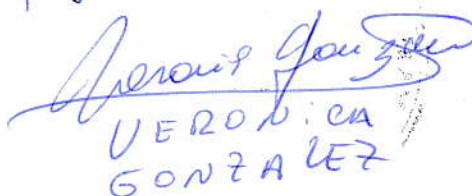 Veronica Gonzalez
VERONiCA
GONZALEZ